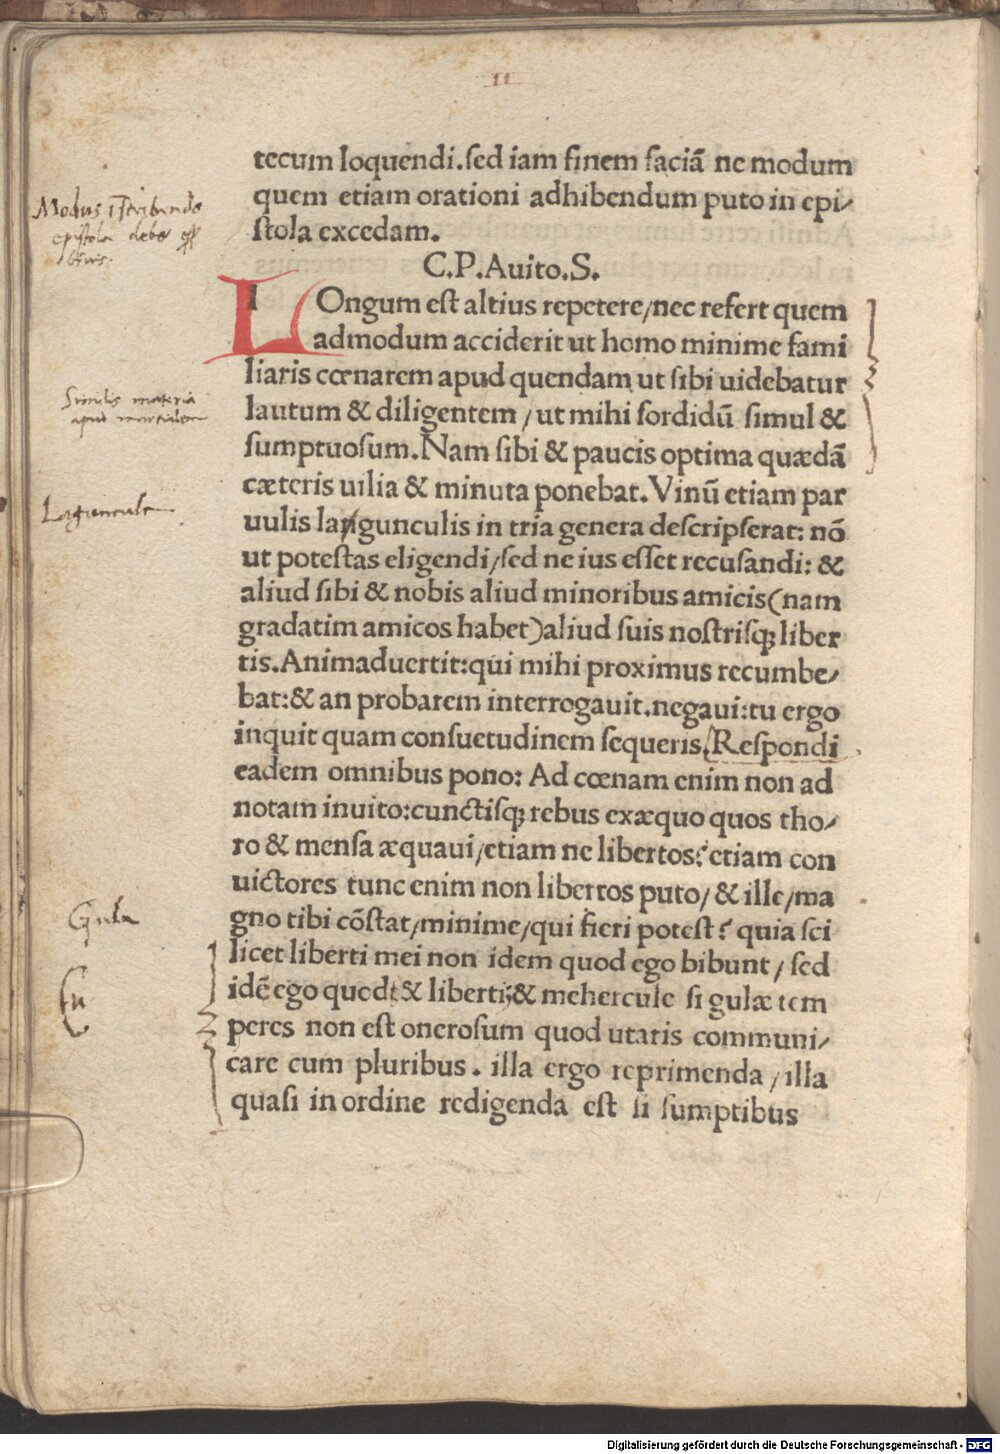 11
tecum loquendi.sed iam finem faciā ne modum
quem etiam orationi adhibendum puto in epi/
stola excedam.
C.P.Auito.S.
LOngum est altius repetere/nec refert quem
admodum acciderit ut homo minime fami
liaris cœnarem apud quendam ut sibi uidebatur
lautum & diligentem / ut mihi sordidū simul &
sumptuosum.Nam sibi & paucis optima quædā
cæteris uilia & minuta ponebat.Vinū etiam par
uulis langunculis in tria genera descripserat: nō
ut potestas eligendi/sed ne ius esset recusandi: &
aliud sibi & nobis aliud minoribus amicis(nam
gradatim amicos habet)aliud suis nostrisqꝫ liber
tis.Animaduertit:qui mihi proximus recumbe/
bat:& an probarem interrogauit.negaui:tu ergo
inquit quam consuetudinem sequeris.Respondi
eadem omnibus pono: Ad cœnam enim non ad
notam inuito:cunctisqꝫ rebus exæquo quos tho/
ro & mensa æquaui/etiam ne libertos?etiam con
uictores tunc enim non libertos puto/ & ille/ma
gno tibi cōstat/minime/qui fieri potest? quia sci
licet liberti mei non idem quod ego bibunt / sed
idē ego quodt & liberti;& mehercule si gulæ tem
peres non est onerosum quod utaris communi/
care cum pluribus . illa ergo reprimenda / illa
quasi in ordine redigenda est si sumptibus
Modus ī scribendo
epistola debet
breuis.
Similis materia
apud martialem
Laguncule
Gula
Digitalisierung gefördert durch die Deutsche Forschungsgemeinschaft - DFG